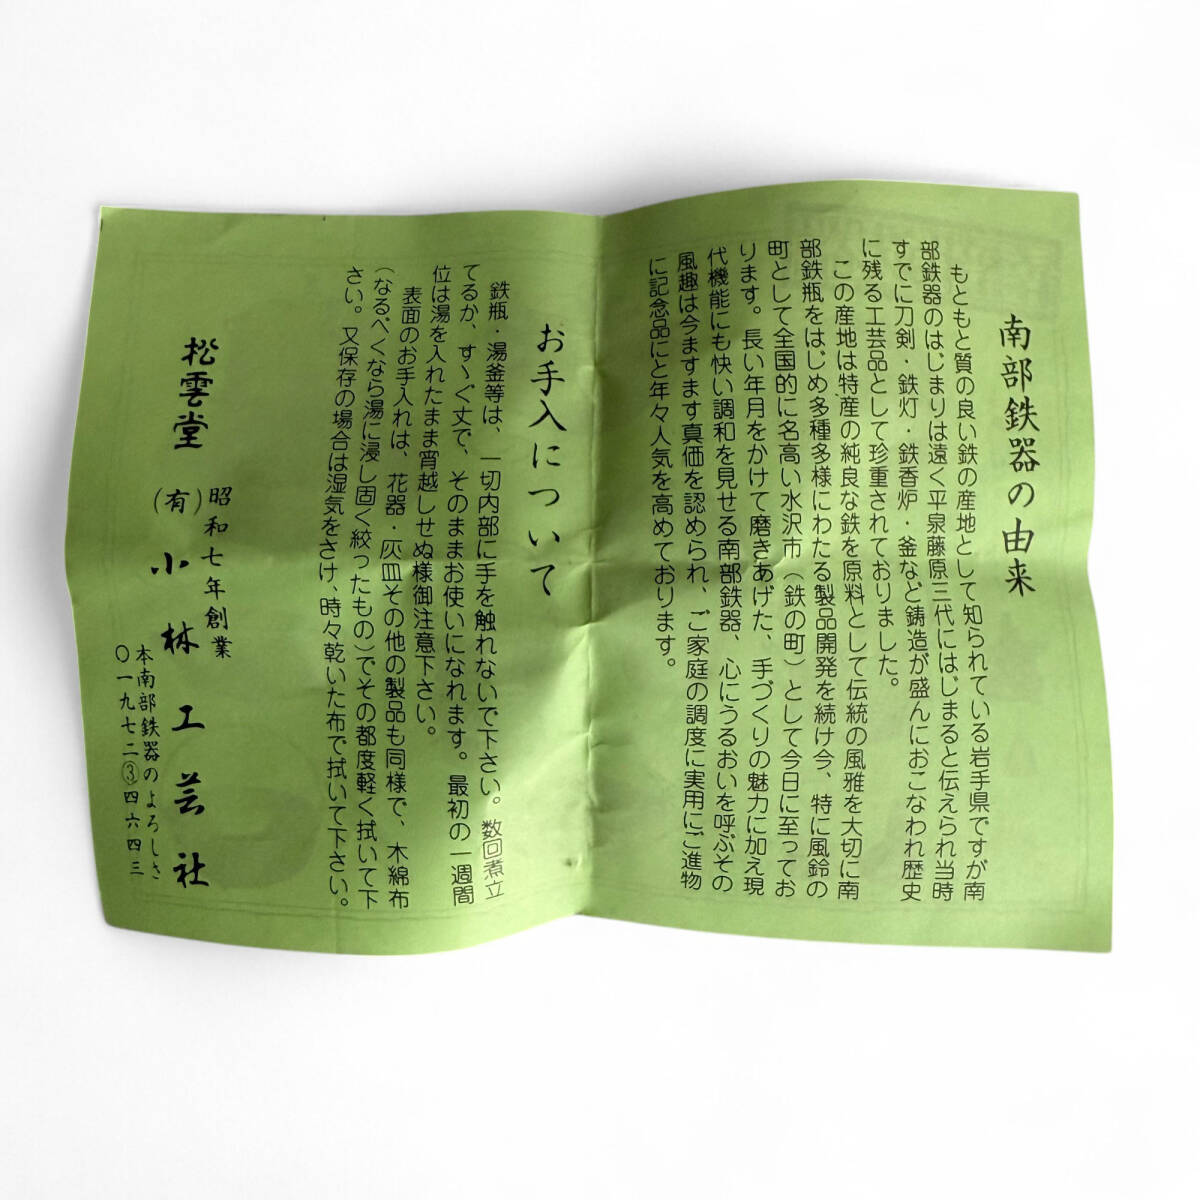 南部鉄器の由来
もともと質の良い鉄の産地として知られている岩手県ですが南
部鉄器のはじまりは遠く平泉藤原三代にはじまると伝えられ当時
すでに刀剣・鉄灯・鉄香炉・釜など鋳造が盛んにおこなわれ歴史
に残る工芸品として珍重されておりました。
この産地は特産の純良な鉄を原料として伝統の風雅を大切に南
部鉄瓶をはじめ多種多様にわたる製品開発を続け今、特に風鈴の
町として全国的に名高い水沢市(鉄の町)として今日に至ってお
ります。長い年月をかけて磨きあげた、手づくりの魅力に加え現
代機能にも快い調和を見せる南部鉄器、心にうるおいを呼ぶその
風趣は今ますます真価を認められ、ご家庭の調度に実用にご進物
に記念品にと年々人気を高めております。
お手入について
鉄瓶・湯釜等は、一切内部に手を触れないで下さい。数回煮立
てるか、すゝぐ丈で、そのままお使いになれます。最初の一週間
位は湯を入れたまま宵越しせぬ様御注意下さい。
表面のお手入れは、花器・灰皿その他の製品も同様で、木綿布
(なるべくなら湯に浸し固く絞ったもの)でその都度軽く拭いて下
さい。又保存の場合は湿気をさけ、時々乾いた布で拭いて下さい。
昭和七年創業
松雲堂(有)小林工芸社
本南部鉄器のよろしさ
〇一九七二③四六四三